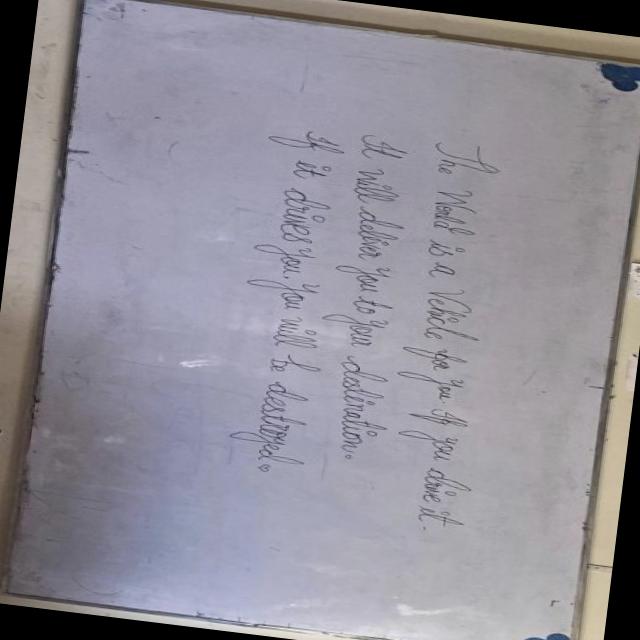 The World is a Vehicle for you if you drive it.
It will deliver you to you destination.
If it drives you you will be destroyed.